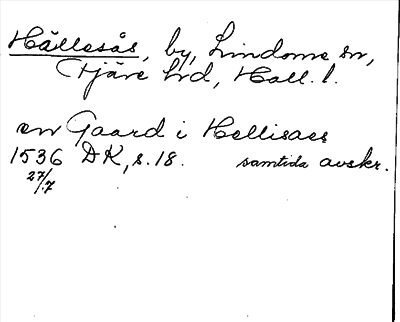 Hällesås, by, Lindome sn,
Fjäre hd, Hall. l.
en Gaard i Hellisaes
1536 DK, s. 18. samtida avskr.
27/7